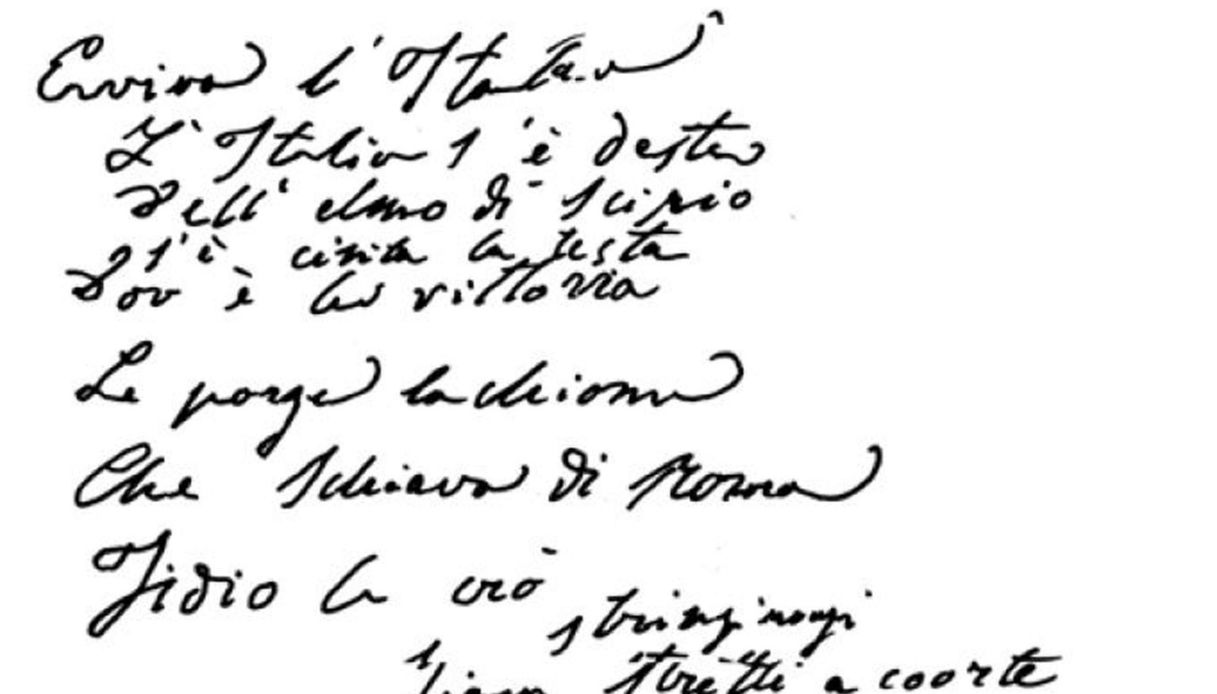 Evviva l'Italia
L'Italia s'è desta
Dell' elmo di Scipio
s'è cinta la testa
Dov'è la vittoria
Le porga la chioma
Che schiava di Roma
Iddio la creò
stringiamci
stretti a coorte